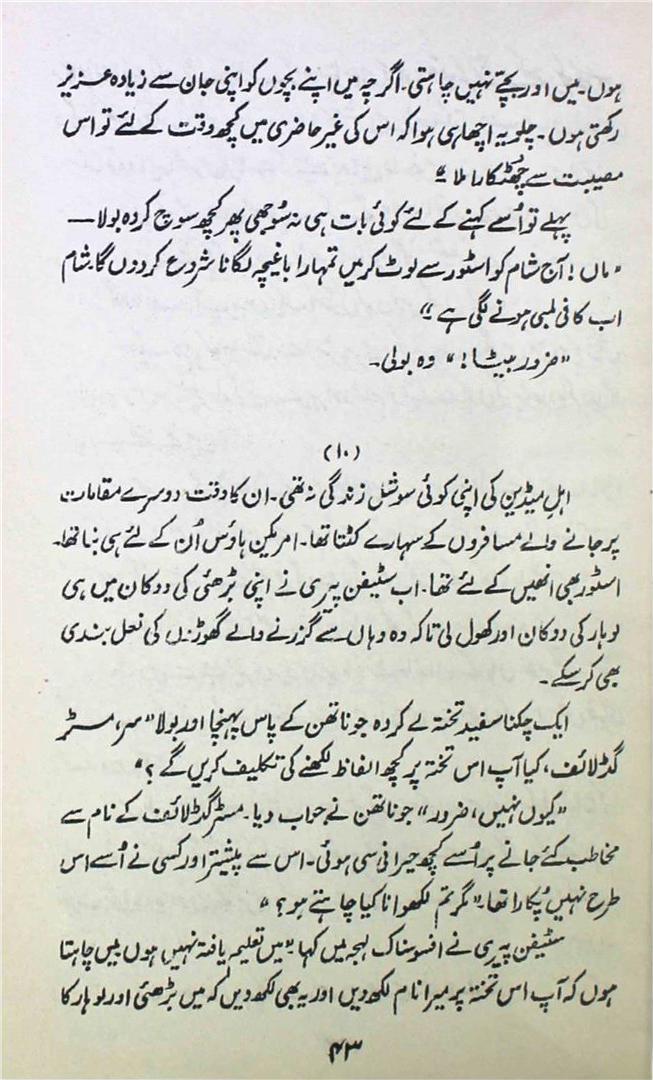 ہوں۔ میں اور بچے نہیں چاہتی۔ اگرچہ میں اپنے بچوں کو اپنی جان سے زیادہ عزیز
رکھتی ہوں۔ چلو یہ اچھا ہی ہوا کہ اس کی غیر حاضری میں کچھ وقت کے لئے تو اس
مصیبت سے چھٹکارا ملا"
پہلے تو اُسے کہنے کے لئے کوئی بات ہی نہ سُوجھی پھر کچھ سوچ کر وہ بولا ——
"ماں! آج شام کو اسٹور سے لوٹ کر میں تمہارا باغیچہ لگانا شروع کر دوں گا۔ شام
اب کافی لمبی ہونے لگی ہے"
"ضرور بیٹا!" وہ بولی۔
(۱۰)
اہلِ میڈین کی اپنی کوئی سوشل زندگی نہ تھی۔ ان کا وقت دوسرے مقامات
پر جانے والے مسافروں کے سہارے کٹتا تھا۔ امریکن ہاؤس اُن کے لئے ہی بنا تھا۔
اسٹور بھی انھیں کے لئے تھا۔ اب سٹیفن پیری نے اپنی بڑھئی کی دوکان میں ہی
لوہار کی دوکان اور کھول لی تاکہ وہ وہاں سے گزرنے والے گھوڑوں کی نعل بندی
بھی کر سکے۔
ایک چکنا سفید تختہ لے کر وہ جوناتھن کے پاس پہنچا اور بولا "سر، مسٹر
گڈلائف، کیا آپ اس تختہ پر کچھ الفاظ لکھنے کی تکلیف کریں گے؟"
"کیوں نہیں، ضرور" جوناتھن نے جواب دیا۔ مسٹر گڈلائف کے نام سے
مخاطب کئے جانے پر اُسے کچھ حیرانی سی ہوئی۔ اس سے پیشتر اور کسی نے اُسے اس
طرح نہیں پُکارا تھا۔ "مگر تم لکھوانا کیا چاہتے ہو؟"
سٹیفن پیری نے افسوسناک لہجہ میں کہا "میں تعلیم یافتہ نہیں ہوں میں چاہتا
ہوں کہ آپ اس تختہ پر میرا نام لکھ دیں اور یہ بھی لکھ دیں کہ میں بڑھئی اور لوہار کا
۴۳